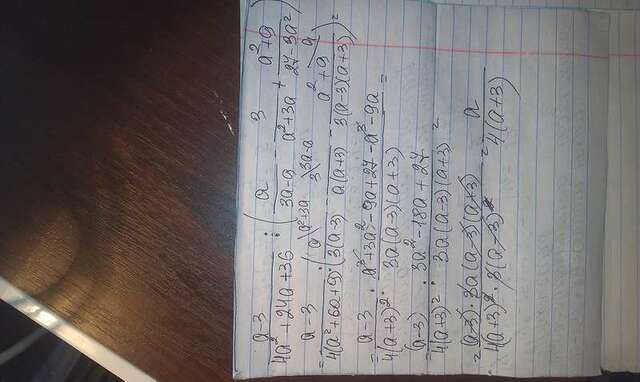 a-3 / 4a²+24a+36 : (a / 3a-9 - 3 / a²+3a + a²+9 / 27-3a²)
= a-3 / 4(a²+6a+9) : (a\a²+3a / 3(a-3) - 3\3a-9 / a(a+3) - a²+9\a / 3(a-3)(a+3)) =
= a-3 / 4(a+3)² : a³+3a²-9a+27-a³-9a / 3a(a-3)(a+3) =
(a-3) / 4(a+3)² : 3a²-18a+27 / 3a(a-3)(a+3) =
= (a-3)·3a(a-3)(a+3) / 4(a+3)²·3(a-3)² = a / 4(a+3)